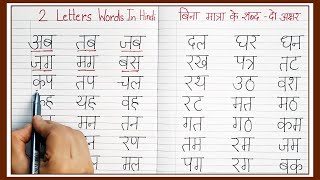 2 Letters Words In Hindi
अब तब जब
जग मग बस
कप तप चल
कह यह वह
मन तन
रण
मल
बिना मात्रा के शब्द - दो अक्षर
दल घर धन
रख पत्र तट
रथ उठ वश
रट मत मठ
गत गठ कम
तम रम जम
पग रग बक